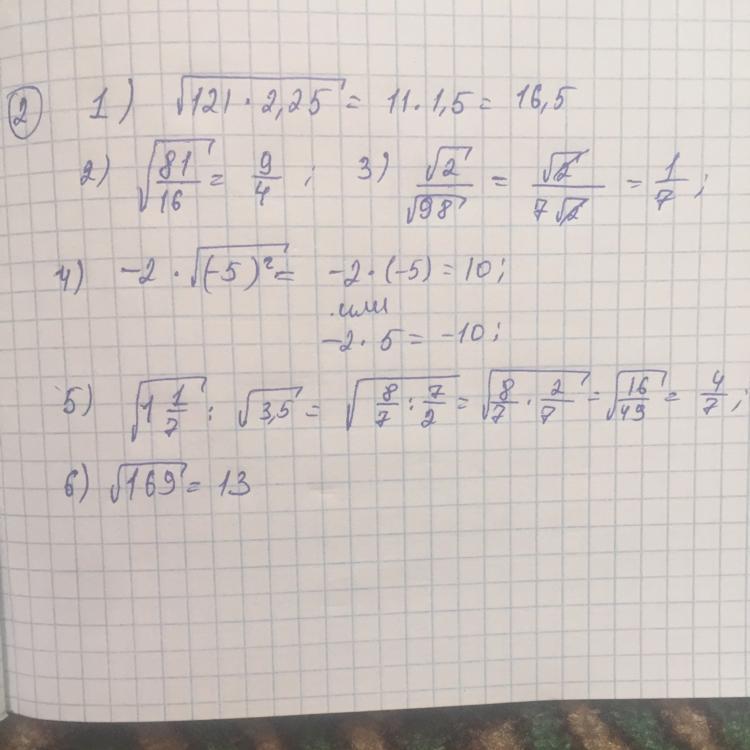 2 1) √(121 · 2,25) = 11 · 1,5 = 16,5
2) √(81/16) = 9/4 ; 3) √2/√98 = √2/(7√2) = 1/7 ;
4) -2 · √((-5)²) = -2 · (-5) = 10 ;
или
-2 · 5 = -10 ;
5) √(1 1/7) : √(3,5) = √(8/7 : 7/2) = √(8/7 · 2/7) = √(16/49) = 4/7 ;
6) √169 = 13